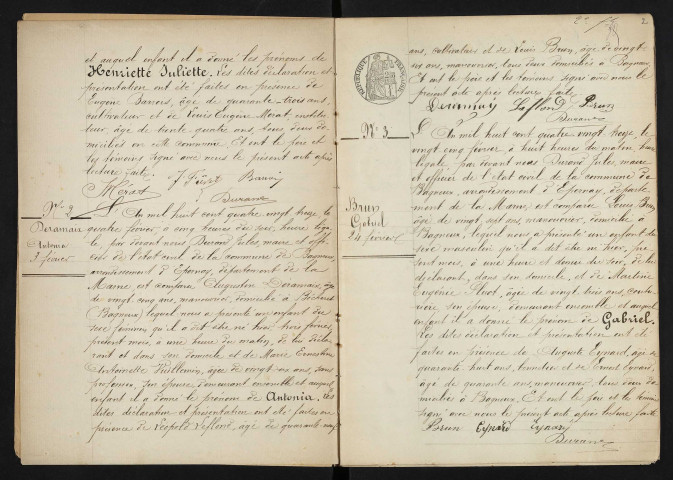 et auquel enfant il a donné les prénoms de
Henriette Juliette. Les dites déclaration et
présentation ont été faites en présence de
Eugène , âgé de quarante-trois ans,
cultivateur et de Louis Eugène Mérat, institu
teur âgé de trente quatre ans, tous deux do
miciliés en cette commune. Et ont le père et
les témoins signé avec nous le présent acte après
lecture faite.
Mérat
Durand
N° 2
Deramaix
Antonia
3 février
L'An mil huit cent quatre vingt treize le
quatre février, à cinq heures du soir, heure léga
le, par devant nous, Durand Jules, maire et offi
cier de l'état civil de la commune de Bagneux,
arrondissement d'Épernay, département de la
Marne est comparu Augustin Deramaix, âgé
de vingt cinq ans, manouvrier, domicilié à
Bagneux, lequel nous a présenté un enfant du
sexe féminin, qu'il a dit être né hier trois février,
présent mois, à une heure du matin, de lui décla
rant et dans son domicile et de Marie Ernestine
Antoinette Vuillemin, âgée de vingt ans, sans
profession, son épouse, demeurant ensemble et auquel
enfant il a donné le prénom de Antonia. Les
dites déclaration et présentation ont été faites en
présence de Léopold Laflond, âgé de quarante neuf
2
ans, cultivateur et de Louis Brun, âgé de vingt
sept ans, manouvrier, tous deux domiciliés à Bagneux,
Et ont le père et les témoins signé avec nous le
présent acte après lecture faite.
Deramaix Laflond Brun
Durand
RÉPUBLIQUE FRANÇAISE
N° 3
Brun
Gabriel
24 février
L'An mil huit cent quatre vingt treize, le
vingt cinq février, à huit heures du matin, heure
légale, par devant nous Durand Jules, maire
et officier de l'état civil de la commune de
Bagneux, arrondissement d'Épernay, départe
ment de la Marne, est comparu Louis Brun,
âgé de vingt sept ans, manouvrier, domicilié à
Bagneux, lequel nous a présenté un enfant du
sexe masculin, qu'il a dit être né hier, pré
sent mois, à une heure et demie du soir, de lui
déclarant, dans son domicile, et de
Eugénie , âgée de vingt trois ans, coutu
rière son épouse, demeurant ensemble, et auquel
enfant il a donné le prénom de Gabriel.
Les dites déclaration et présentation ont été
faites en présence de Auguste Eynard, âgé de
quarante huit ans, et de Ernest Eynard,
âgé de quarante ans, manouvrier, tous deux do
miciliés à Bagneux. Et ont le père et les témoins
signé avec nous le présent acte après lecture faite.
Brun Eynard Eynard
Durand